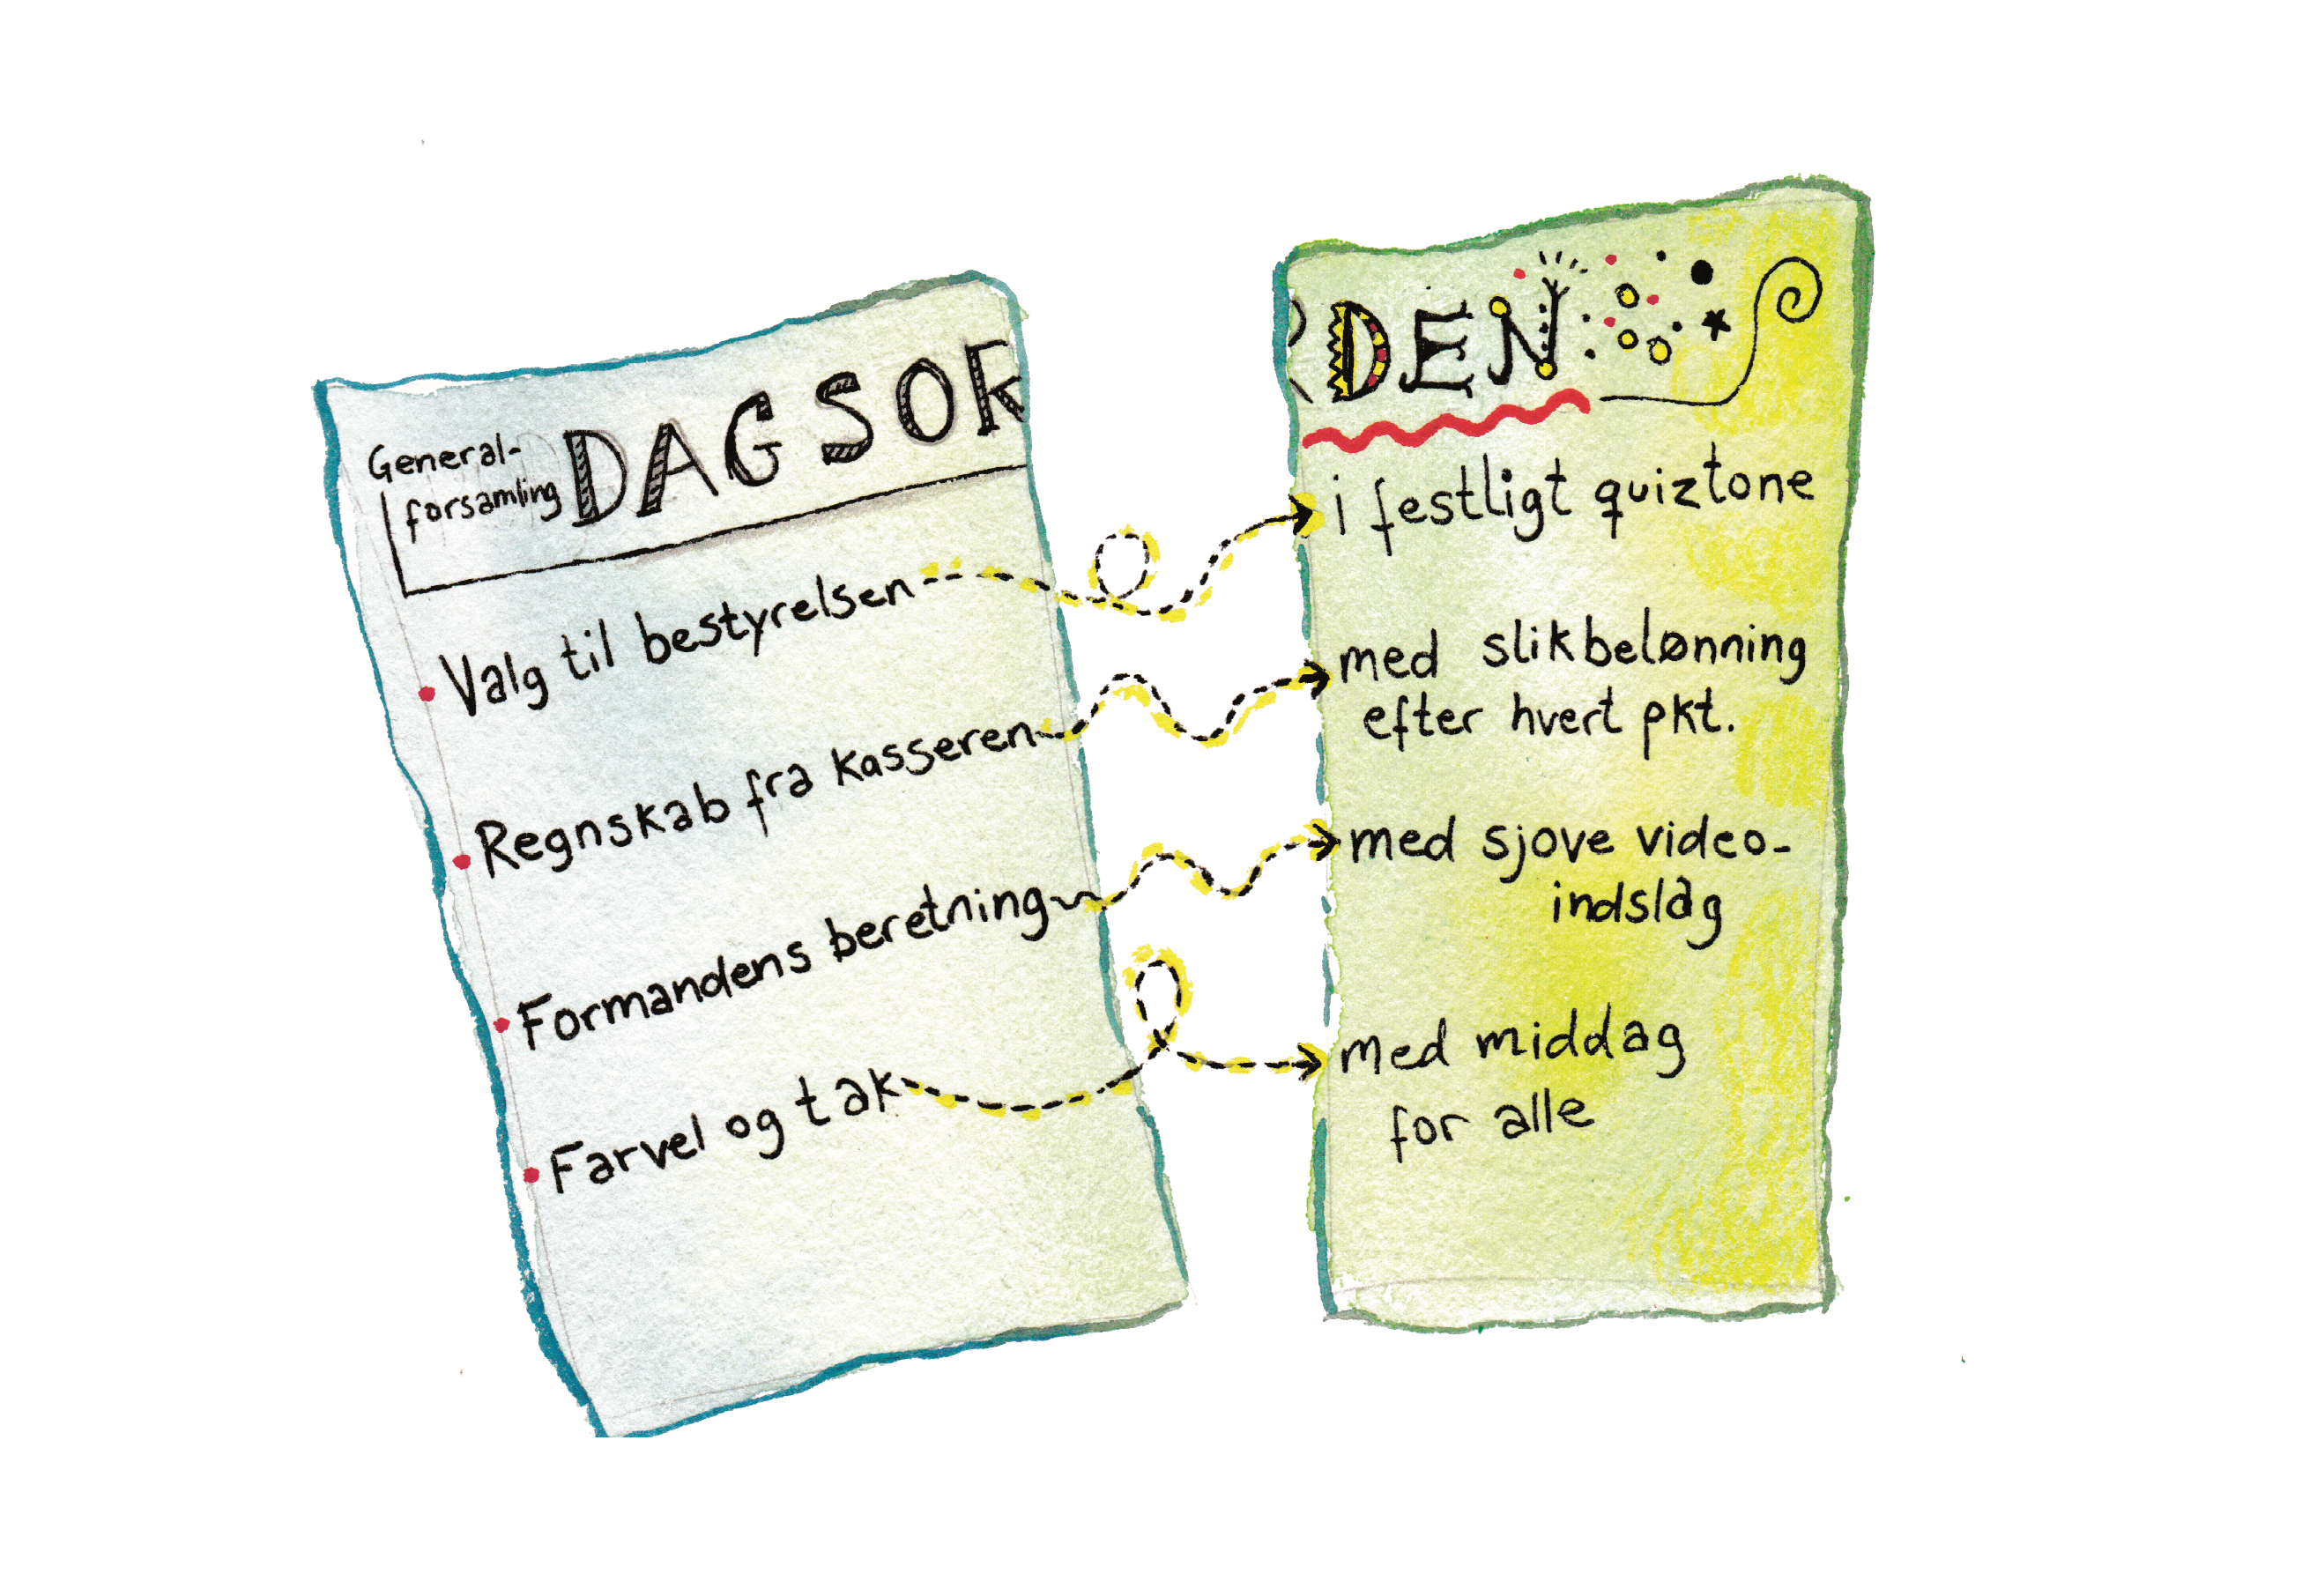 General-
forsamling
DAGSOR
• Valg til bestyrelsen
• Regnskab fra kasseren
• Formandens beretning
• Farvel og tak
RDEN
i festligt quiztone
med slikbelønning
efter hvert pkt.
med sjove video-
indslag
med middag
for alle